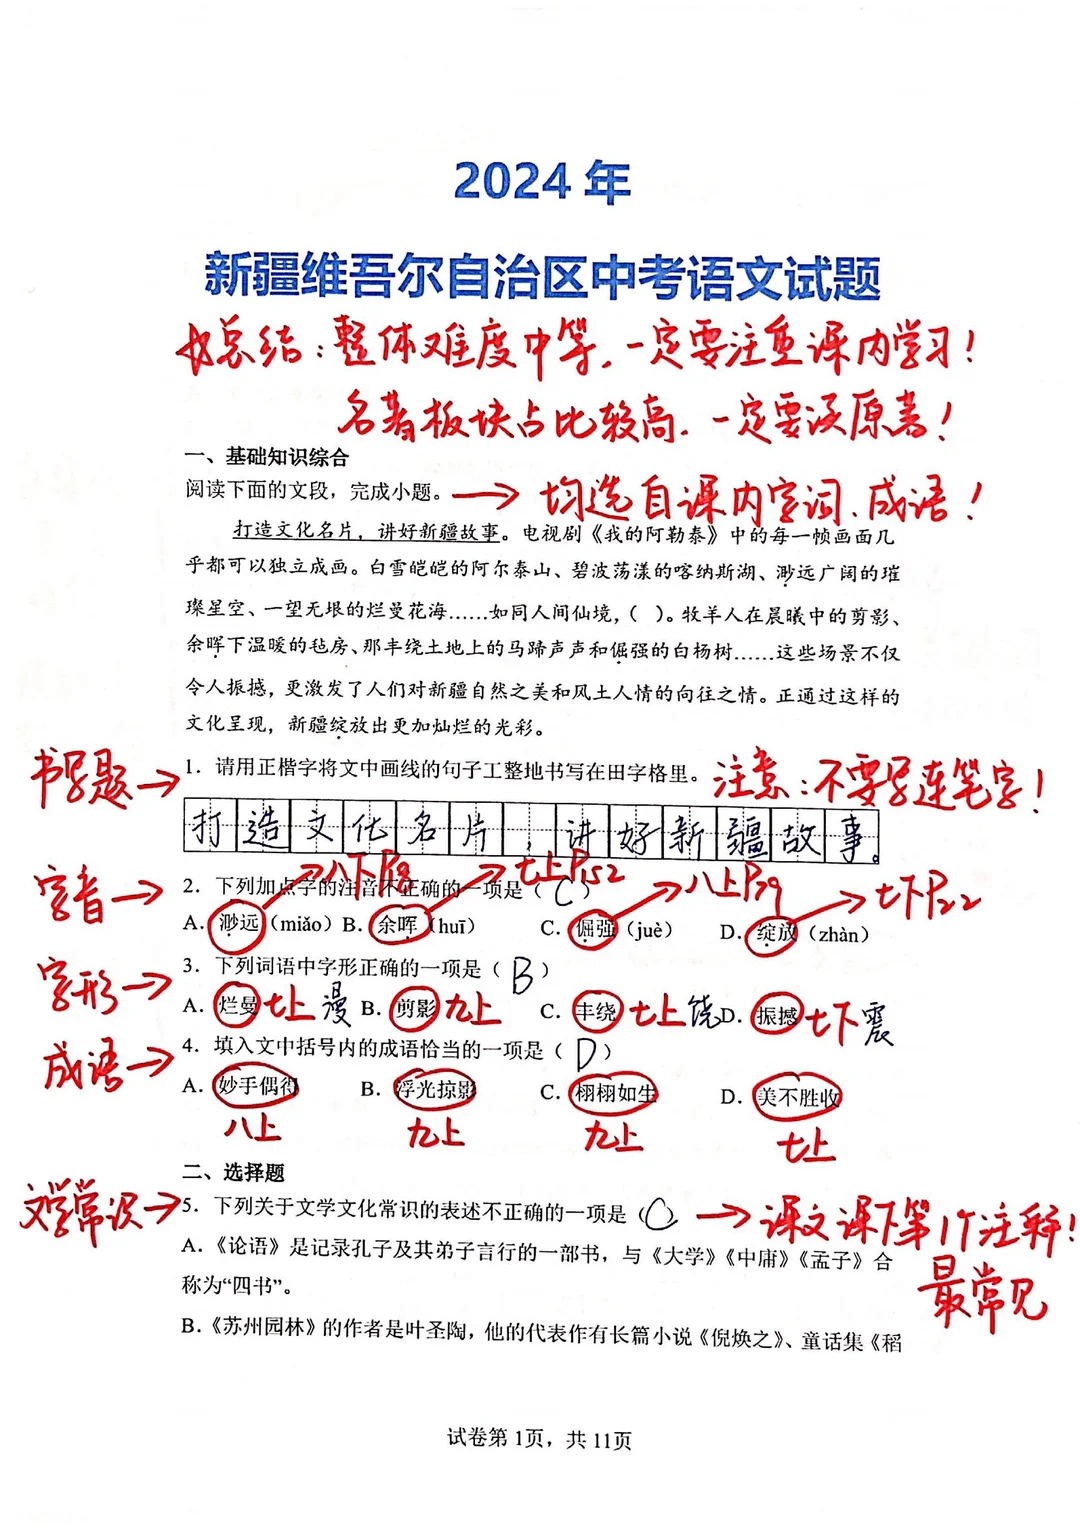 2024 年
新疆维吾尔自治区中考语文试题
总结:整体难度中等,一定要注重课内学习!
名著板块占比较高.一定要读原著!
一、基础知识综合
阅读下面的文段，完成小题。→均选自课内字词.成语!
打造文化名片，讲好新疆故事。电视剧《我的阿勒泰》中的每一帧画面几
乎都可以独立成画。白雪皑皑的阿尔泰山、碧波荡漾的喀纳斯湖、渺远广阔的璀
璨星空、一望无垠的烂曼花海……如同人间仙境，（ ）。牧羊人在晨曦中的剪影、
余晖下温暖的毡房、那丰绕土地上的马蹄声声和倔强的白杨树……这些场景不仅
令人振撼，更激发了人们对新疆自然之美和风土人情的向往之情。正通过这样的
文化呈现，新疆绽放出更加灿烂的光彩。
书写题→ 1．请用正楷字将文中画线的句子工整地书写在田字格里。 注意:不要写连笔字!
打造文化名片,讲好新疆故事。
八下P8 七上P152 八上P79 七下P22
字音→ 2．下列加点字的注音不正确的一项是（ C ）
A．渺远（miǎo） B．余晖（huī） C．倔强（juè） D．绽放（zhàn）
字形→ 3．下列词语中字形正确的一项是（ B ）
A．烂曼 七上 漫 B．剪影 九上 C．丰绕 七上 饶 D．振撼 七下 震
成语→ 4．填入文中括号内的成语恰当的一项是（ D ）
A．妙手偶得 B．浮光掠影 C．栩栩如生 D．美不胜收
八上 九上 九上 七上
二、选择题
文学常识→ 5．下列关于文学文化常识的表述不正确的一项是（ C ） →课文课下第1个注释!
最常见
A．《论语》是记录孔子及其弟子言行的一部书，与《大学》《中庸》《孟子》合
称为“四书”。
B．《苏州园林》的作者是叶圣陶，他的代表作有长篇小说《倪焕之》、童话集《稻
试卷第 1页，共 11页